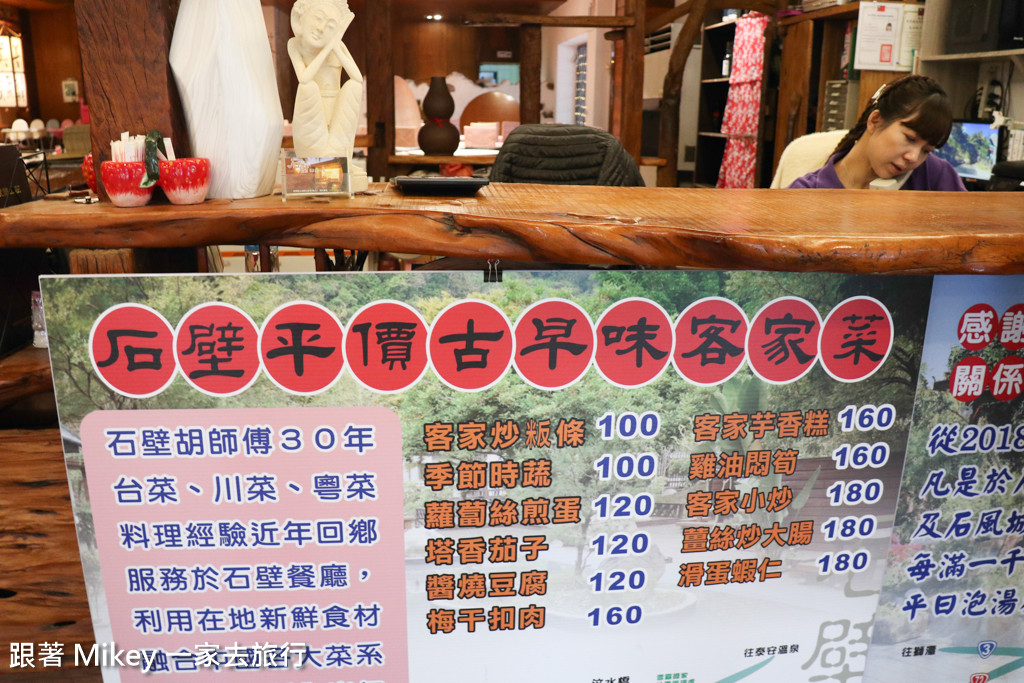 石壁平價古早味客家菜
石壁胡師傅30年
台菜、川菜、粵菜
料理經驗近年回鄉
服務於石壁餐廳，
利用在地新鮮食材
大菜系
客家炒粄條 100
季節時蔬 100
蘿蔔絲煎蛋 120
塔香茄子 120
醬燒豆腐 120
梅干扣肉 160
客家芋香糕 160
雞油悶筍 160
客家小炒 180
薑絲炒大腸 180
滑蛋蝦仁 180
往泰安溫泉
汶水橋
壁
感謝
關係
從2018
凡是於
及石風城
每滿一千
平日泡湯
往獅潭
3
跟著 Mikey 一家去旅行